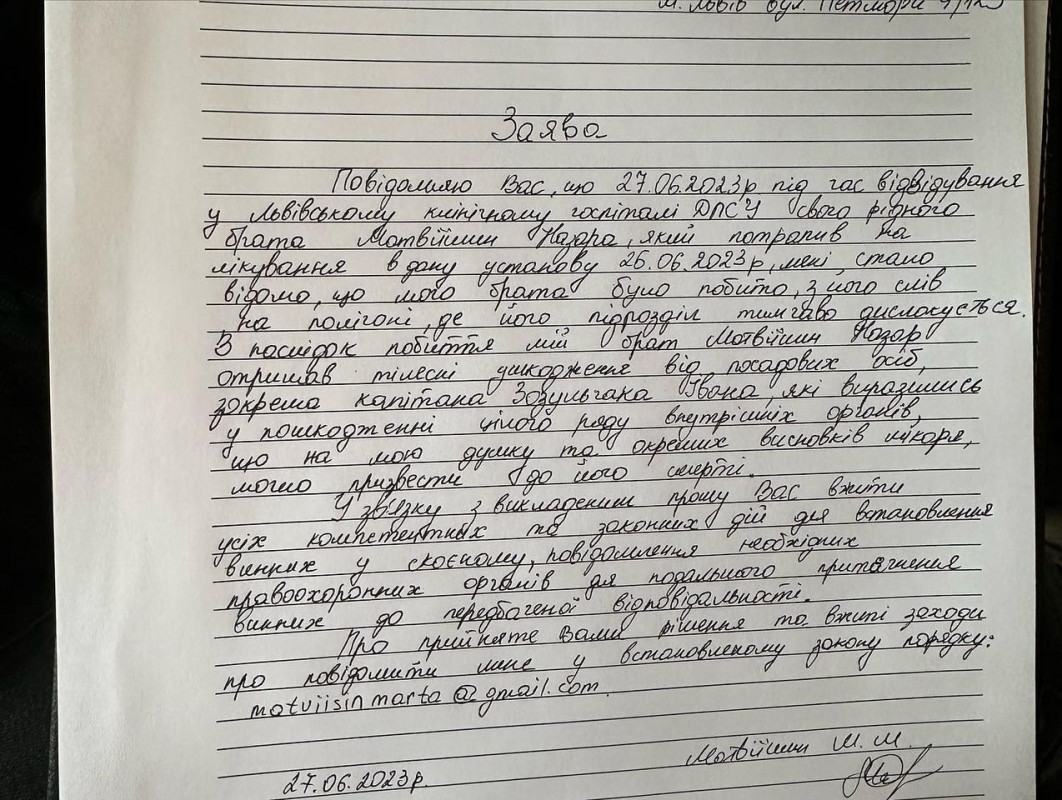 м. Львів вул.
Заява
Повідомляю Вас, що 27.06.2023р під час відвідування
у Львівському клінічному госпіталі ДПСУ свого рідного
брата Матвіїшин Назара, який потрапив на
лікування в дану установу 26.06.2023р, мені стало
відомо, що мого брата було побито, з його слів
, на полігоні, де його підрозділ тимчаво дислокується.
В наслідок побиття мій брат Матвіїшин Назар
отримав тілесні ушкодження від посадових осіб,
зокрема капітана Зозульчака Івана, які виразились
у пошкодженні цілого ряду внутрішніх органів,
що на мою думку та окремих висновків лікаря,
могло призвести до його смерті.
У зв'язку з викладеним прошу Вас вжити
усіх компетентних та законних дій для встановлення
винних у скоєному, повідомлення необхідних
правоохоронних органів для подальшого притягнення
винних до передбаченої відповідальності.
Про прийняте Вами рішення та вжиті заходи
про повідомити мене у встановленому закону порядку:
matviisinmarta@gmail.com.
Матвіїшин М. М.
27.06.2023р.